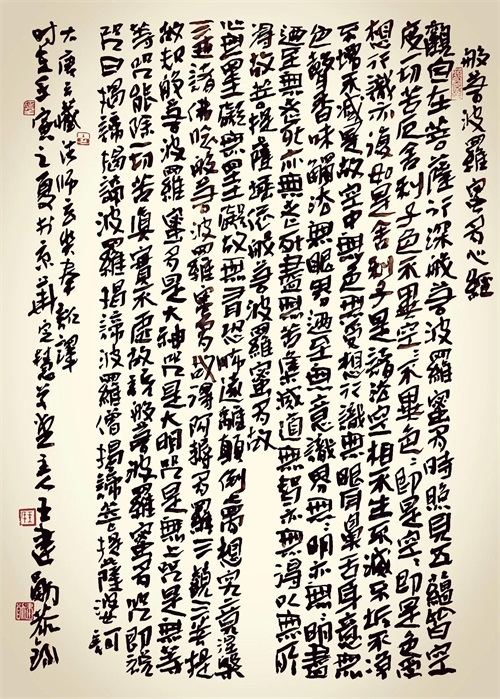 般若波羅蜜多心經
觀自在菩薩行深般若波羅蜜多時照見五蘊皆空
度一切苦厄舍利子色不異空〻不異色〻即是空〻即是色受
想行識亦復如是舍利子是諸法空相不生不滅不垢不淨
不增不減是故空中無色無受想行識無眼耳鼻舌身意無
色聲香味觸法無眼界乃至無意識界無〻明亦無〻明盡
乃至無老死亦無老死盡無苦集滅道無智亦無得以無所
得故菩提薩埵依般若波羅蜜多故
心無罣礙無罣礙故無有恐怖遠離顛倒夢想究竟涅槃
三世諸佛依般若波羅蜜多故得阿耨多羅三藐三菩提
故知般若波羅蜜多是大神咒是大明咒是無上咒是無等
等咒能除一切苦真實不虛故說般若波羅蜜多咒即說
咒曰揭諦揭諦波羅揭諦波羅僧揭諦菩提薩婆訶
大唐三藏法師玄奘奉詔譯
时在壬寅之夏於京華定慧主人王建勛